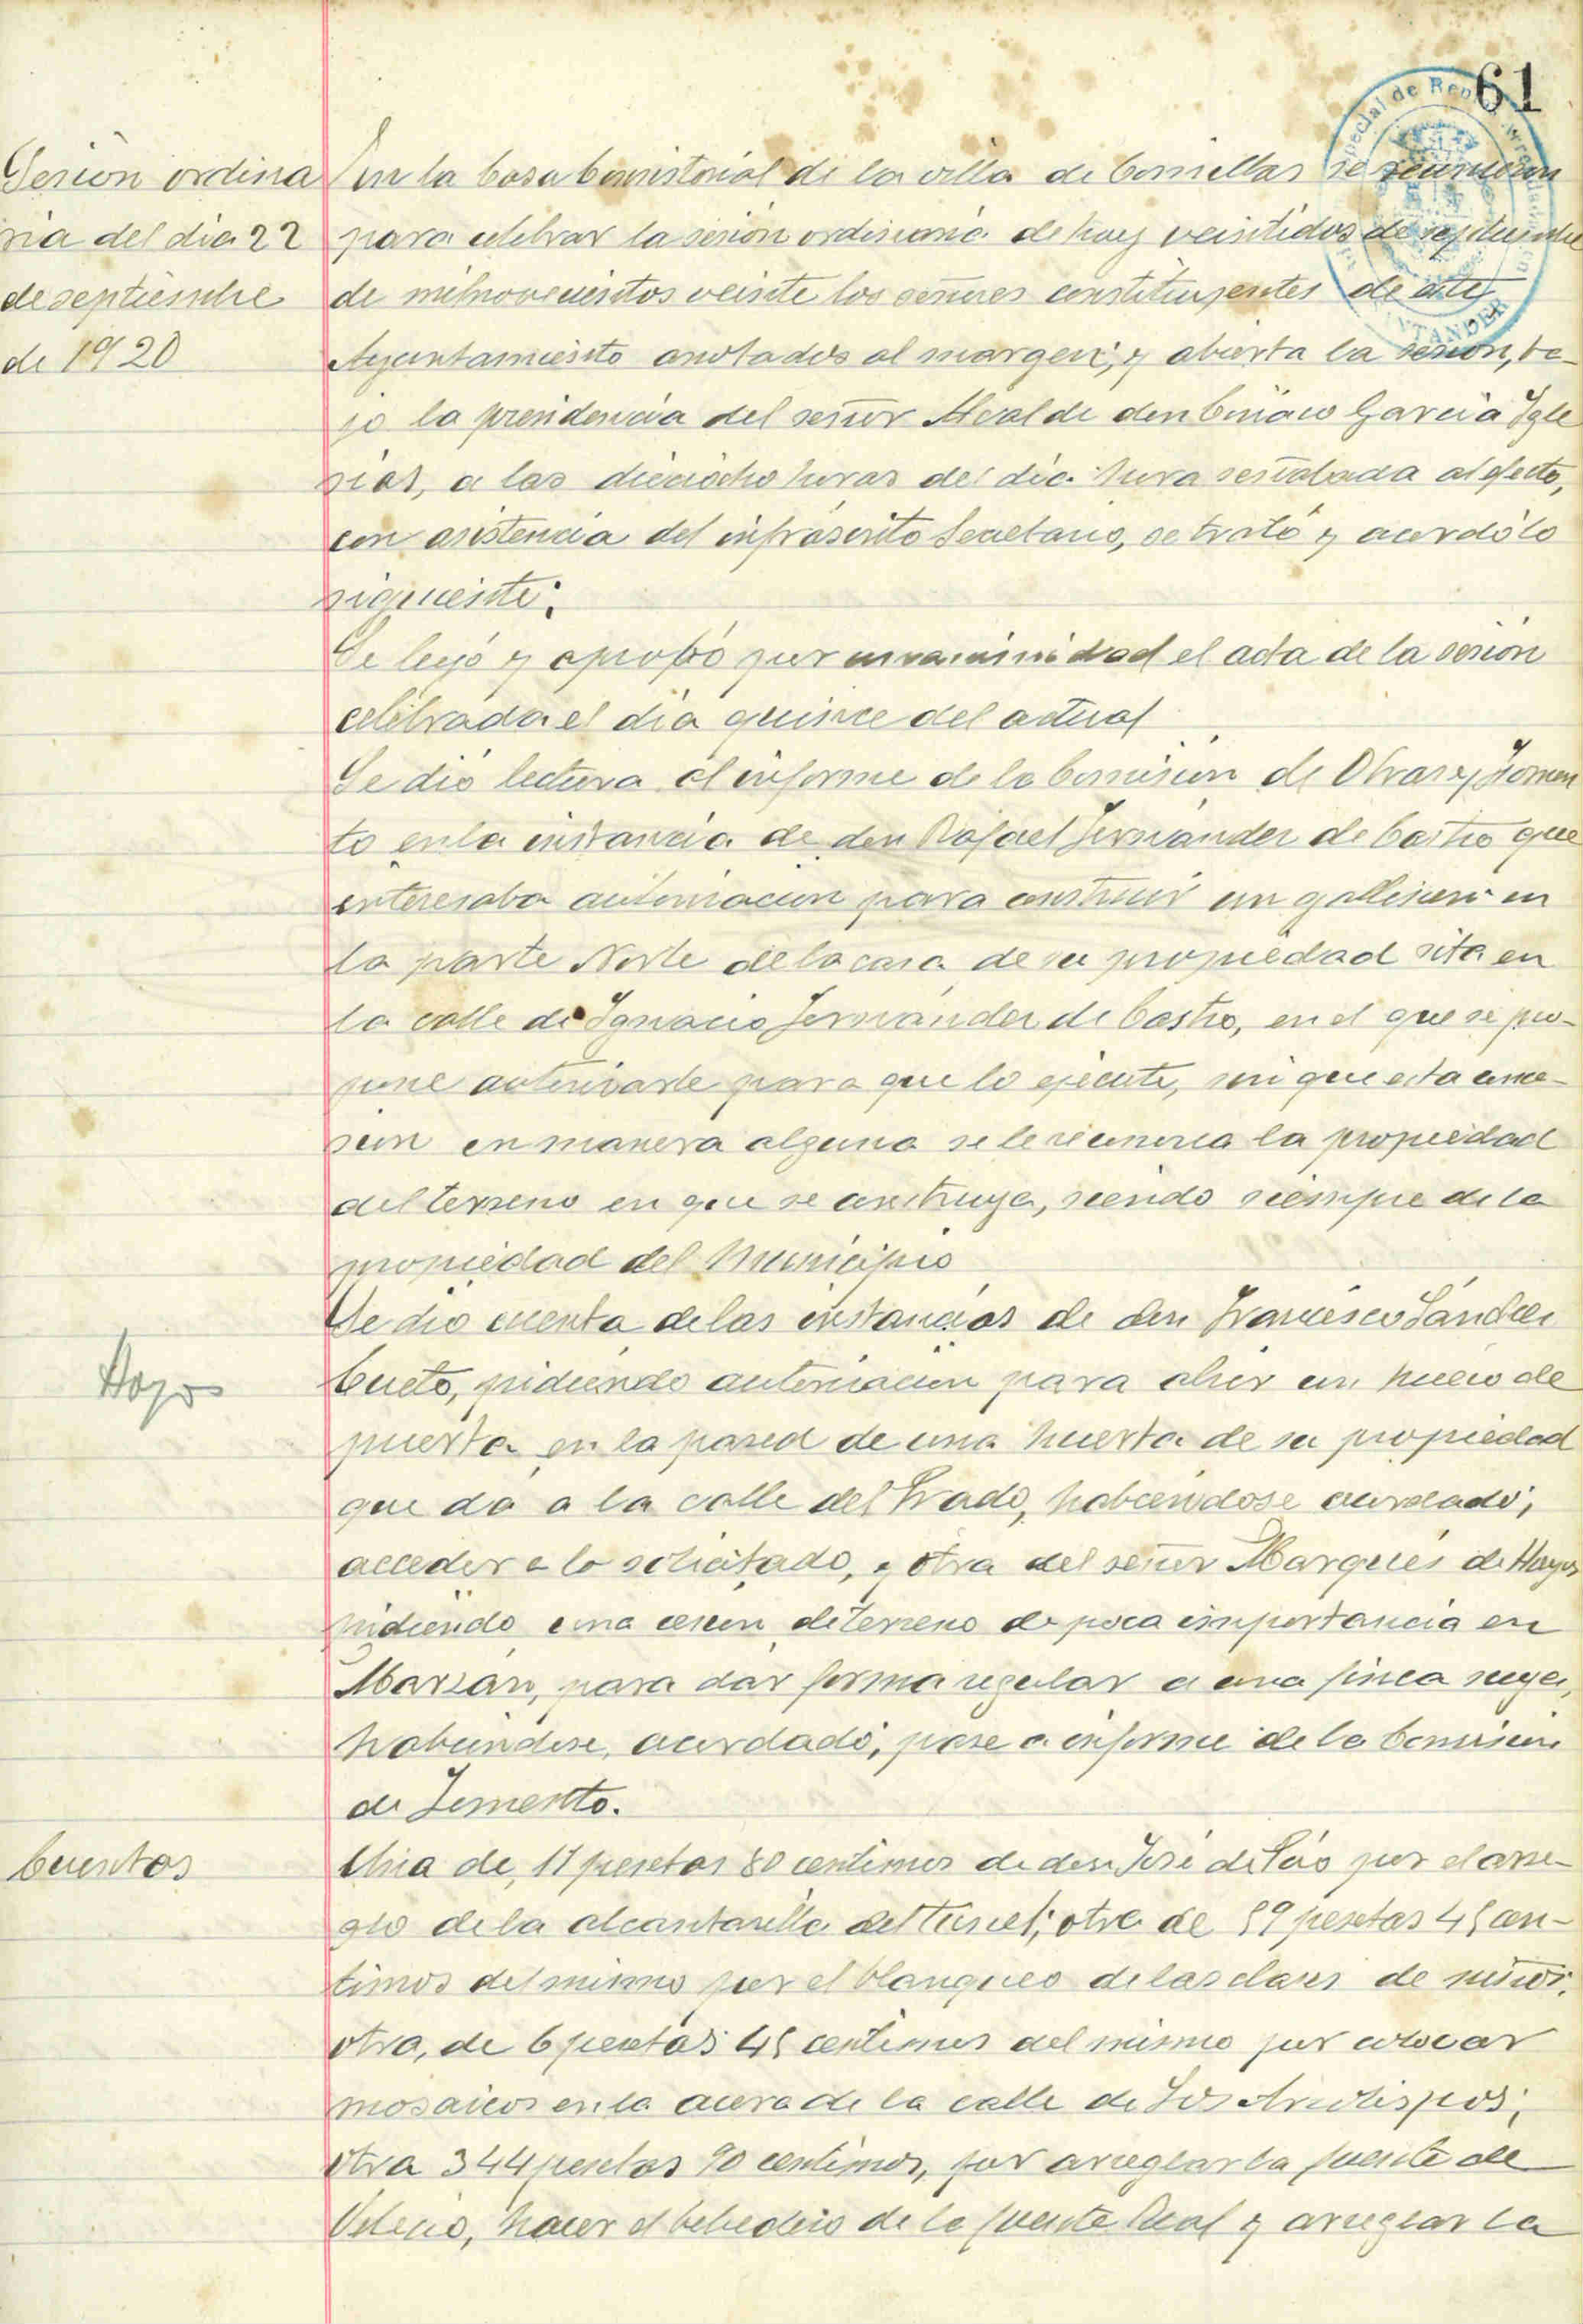 61
Sesión ordina
ria del dia 22
de septiembre
de 1920
En la Casa Consistorial de la villa de Comillas se reunieron
para celebrar la sesión ordinaria de hoy veintidos de septiembre
de milnovecientos veinte los señores constituyentes de este
Ayuntamiento anotados al margen, y abierta la sesión, ba-
jo la presidencia del señor Alcalde don Ciriaco García Igle
sias, a las dieciocho horas del día hora señalada al efecto,
con asistencia del infrascrito Secretario, se trató y acordó lo
siguiente:
Se leyó y aprobó por unanimidad el acta de la sesión
celebrada el día quince del actual
Se dió lectura al informe de la Comisión de Obras y Fomen
to en la instancia de don Rafael Fernández de Castro que
interesaba autorización para construir un gallinero en
la parte Norte de la casa de su propiedad sita en
la calle de Ignacio Fernández de Castro, en el que se pro-
pone autorizarle para que lo ejecute, sin que esta conce-
sión en manera alguna se le reconozca la propiedad
del terreno en que se construya, siendo siempre de la
propiedad del Municipio
Se dio cuenta de las instancias de don Francisco Sánchez
Cueto, pidiendo autorización para abrir un hueco de
puerta en la pared de una huerta de su propiedad
que da a la calle del Prado, habiéndose acordado,
acceder a lo solicitado, y otra del señor Marqués de Hoyos
pidiendo una cesión de terreno de poca importancia en
Marzán, para dar forma regular a una finca suya,
habiéndose acordado, pase a informe de la Comisión
de Fomento.
Hoyos
Cuentas
Una de 11 pesetas 80 centimos de don José de Sás por el arre-
glo de la alcantarilla del túnel; otra de 59 pesetas 45 cen-
timos del mismo por el blanqueo de las clases de niños;
otra, de 6 pesetas 45 centimos del mismo por colocar
mosaicos en la acera de la calle de Los Arzobispos;
otra 344 pesetas 90 centimos, por arreglar la fuente de
Velecio, hacer el bebedero de la fuente Real y arreglar la